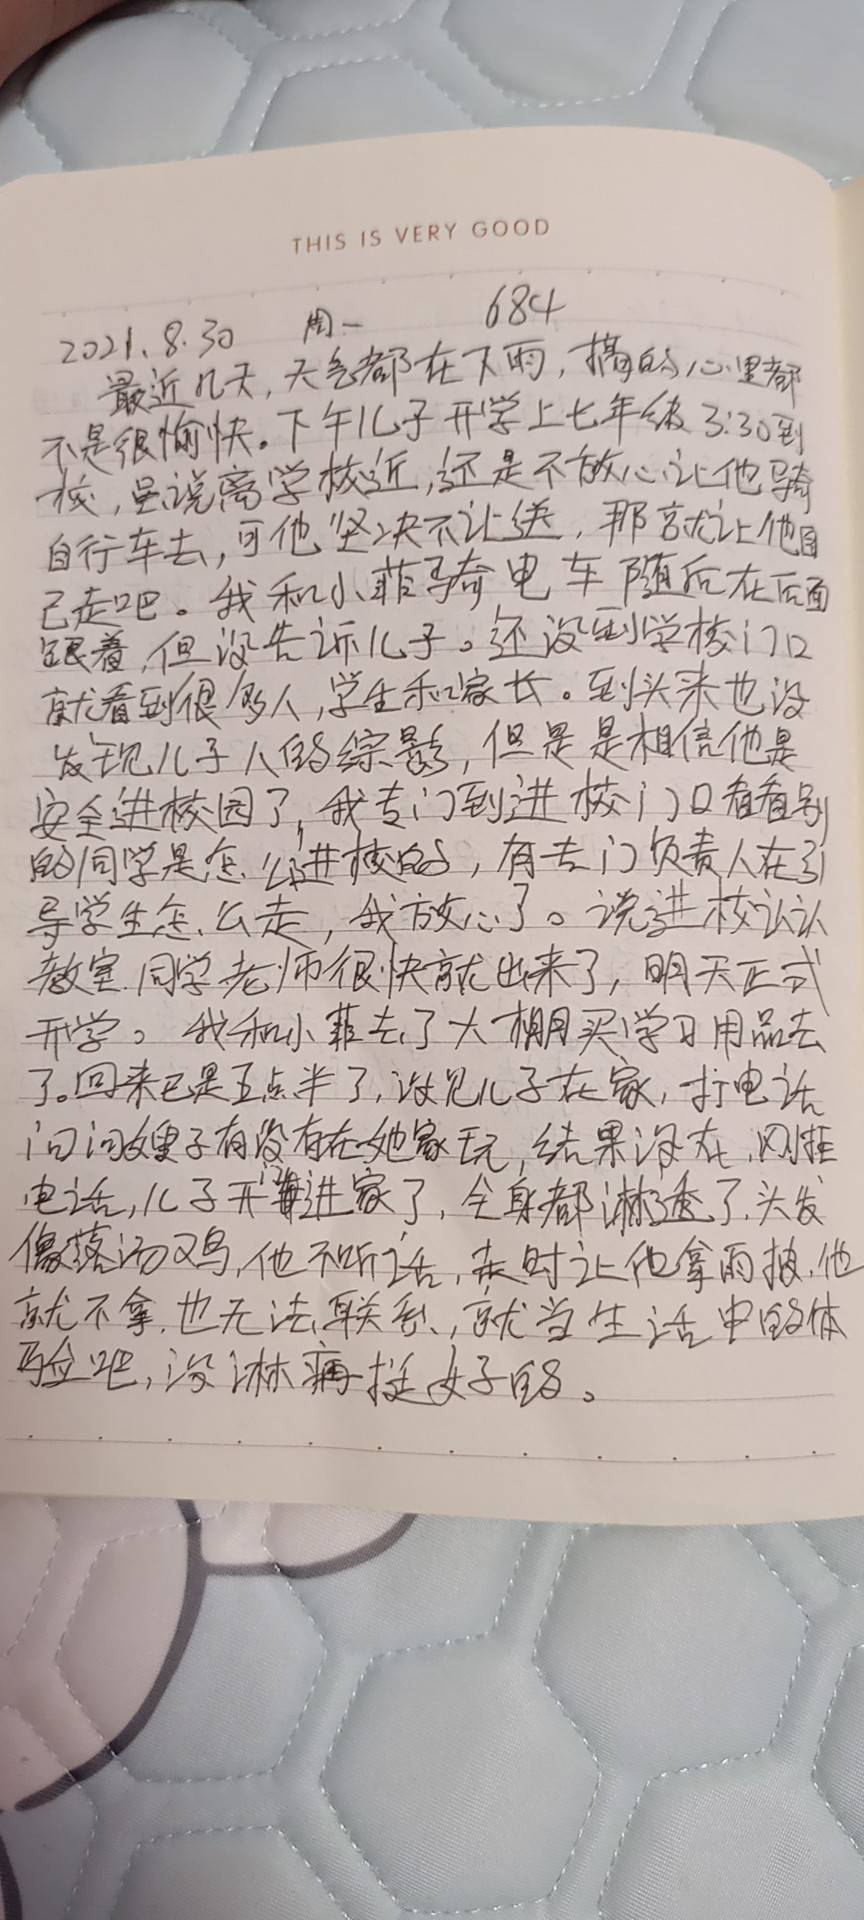 THIS IS VERY GOOD
2021.8.30 周一 684
最近几天，天气都在下雨，搞的心里都
不是很愉快。下午儿子开学上七年级3:30到
校，虽说离学校近，还是不放心让他骑
自行车去，可他坚决不让送，那就让他自
己走吧。我和小菲骑电车随后在后面
跟着，但没告诉儿子。还没到学校门口
就看到很多人，学生和家长。到头来也没
发现儿子人的综影，但是是相信他是
安全进校园了，我专门到进校门口看看别
的同学是怎么进校的，有专门负责人在引
导学生怎么走，我放心了。说进校认认
教室.同学老师很快就出来了，明天正式
开学。我和小菲去了大棚买学习用品去
了。回来已是五点半了，没见儿子在家，打电话
问问嫂子有没有在她家玩，结果没在，刚挂
电话，儿子开门进家了，全身都淋透了，头发
像落汤鸡，他不听话，走时让他拿雨披，他
就不拿.也无法联系，就当生活中的体
验吧，没淋病挺好的。